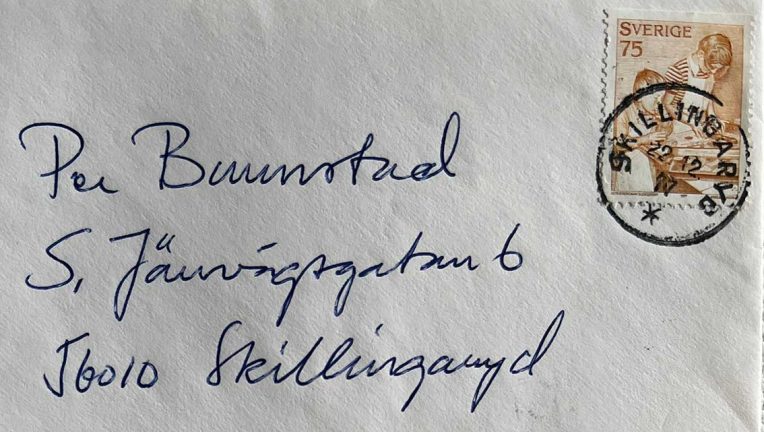 SVERIGE
75
SKILLINGARYD
22 12
*
Per
S, Järnvägsgatan 6
56010 Skillingaryd